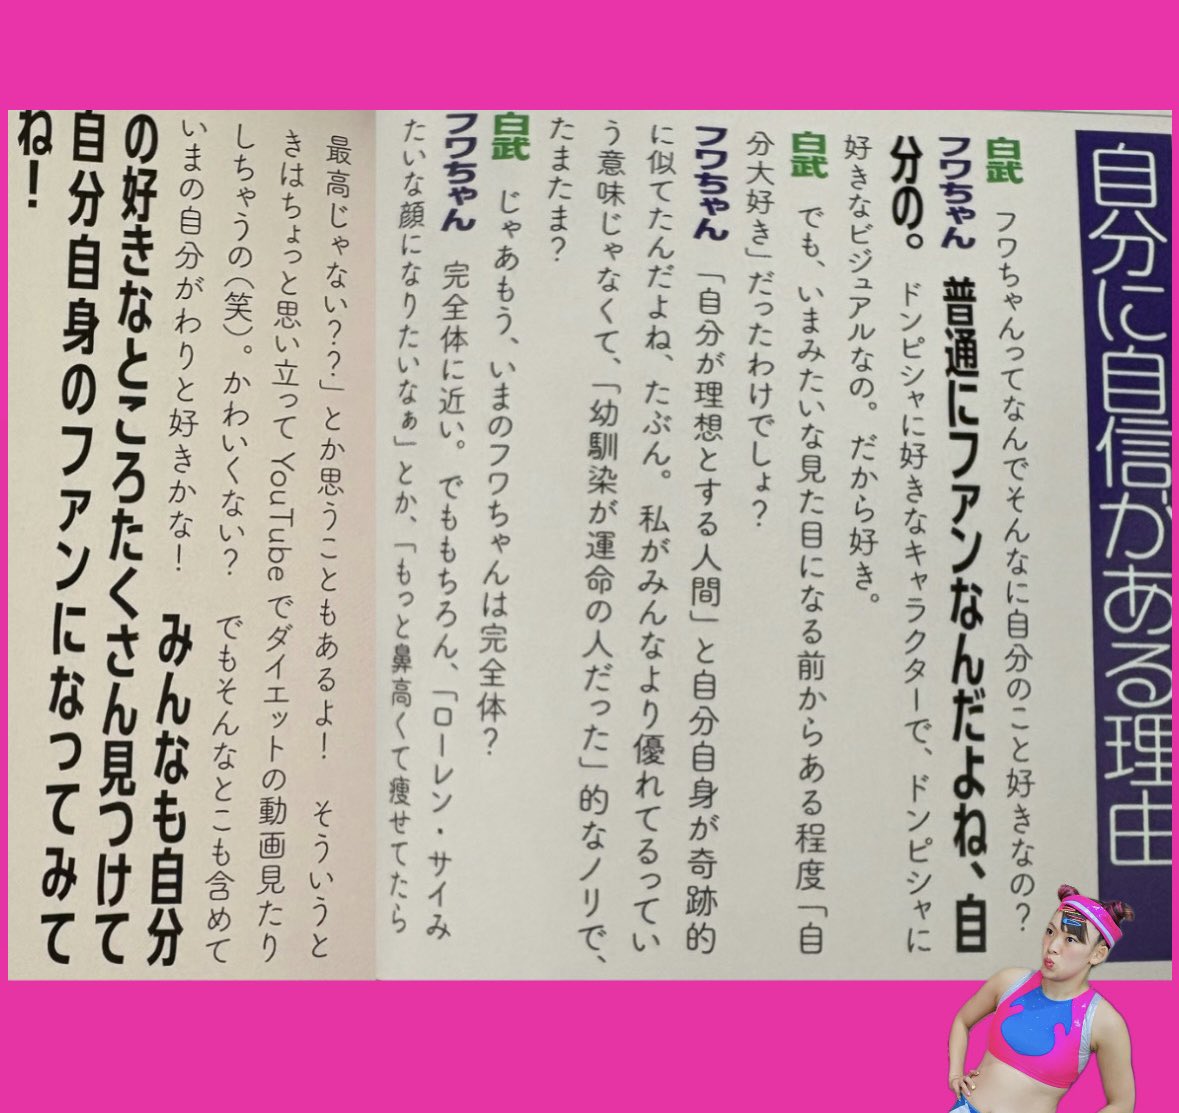 自分に自信がある理由
白武 フワちゃんってなんでそんなに自分のこと好きなの?
フワちゃん 普通にファンなんだよね、自
分の。ドンピシャに好きなキャラクターで、ドンピシャに
好きなビジュアルなの。だから好き。
白武 でも、いまみたいな見た目になる前からある程度「自
分大好き」だったわけでしょ?
フワちゃん 「自分が理想とする人間」と自分自身が奇跡的
に似てたんだよね、たぶん。私がみんなより優れてるってい
う意味じゃなくて、「幼馴染が運命の人だった」的なノリで、
たまたま?
白武 じゃあもう、いまのフワちゃんは完全体?
フワちゃん 完全体に近い。でももちろん、「ローレン・サイみ
たいな顔になりたいなぁ」とか、「もっと鼻高くて痩せてたら
最高じゃない??」とか思うこともあるよ! そういうと
きはちょっと思い立ってYouTubeでダイエットの動画見たり
しちゃうの(笑)。かわいくない? でもそんなとこも含めて
いまの自分がわりと好きかな! みんなも自分
の好きなところたくさん見つけて
自分自身のファンになってみて
ね!